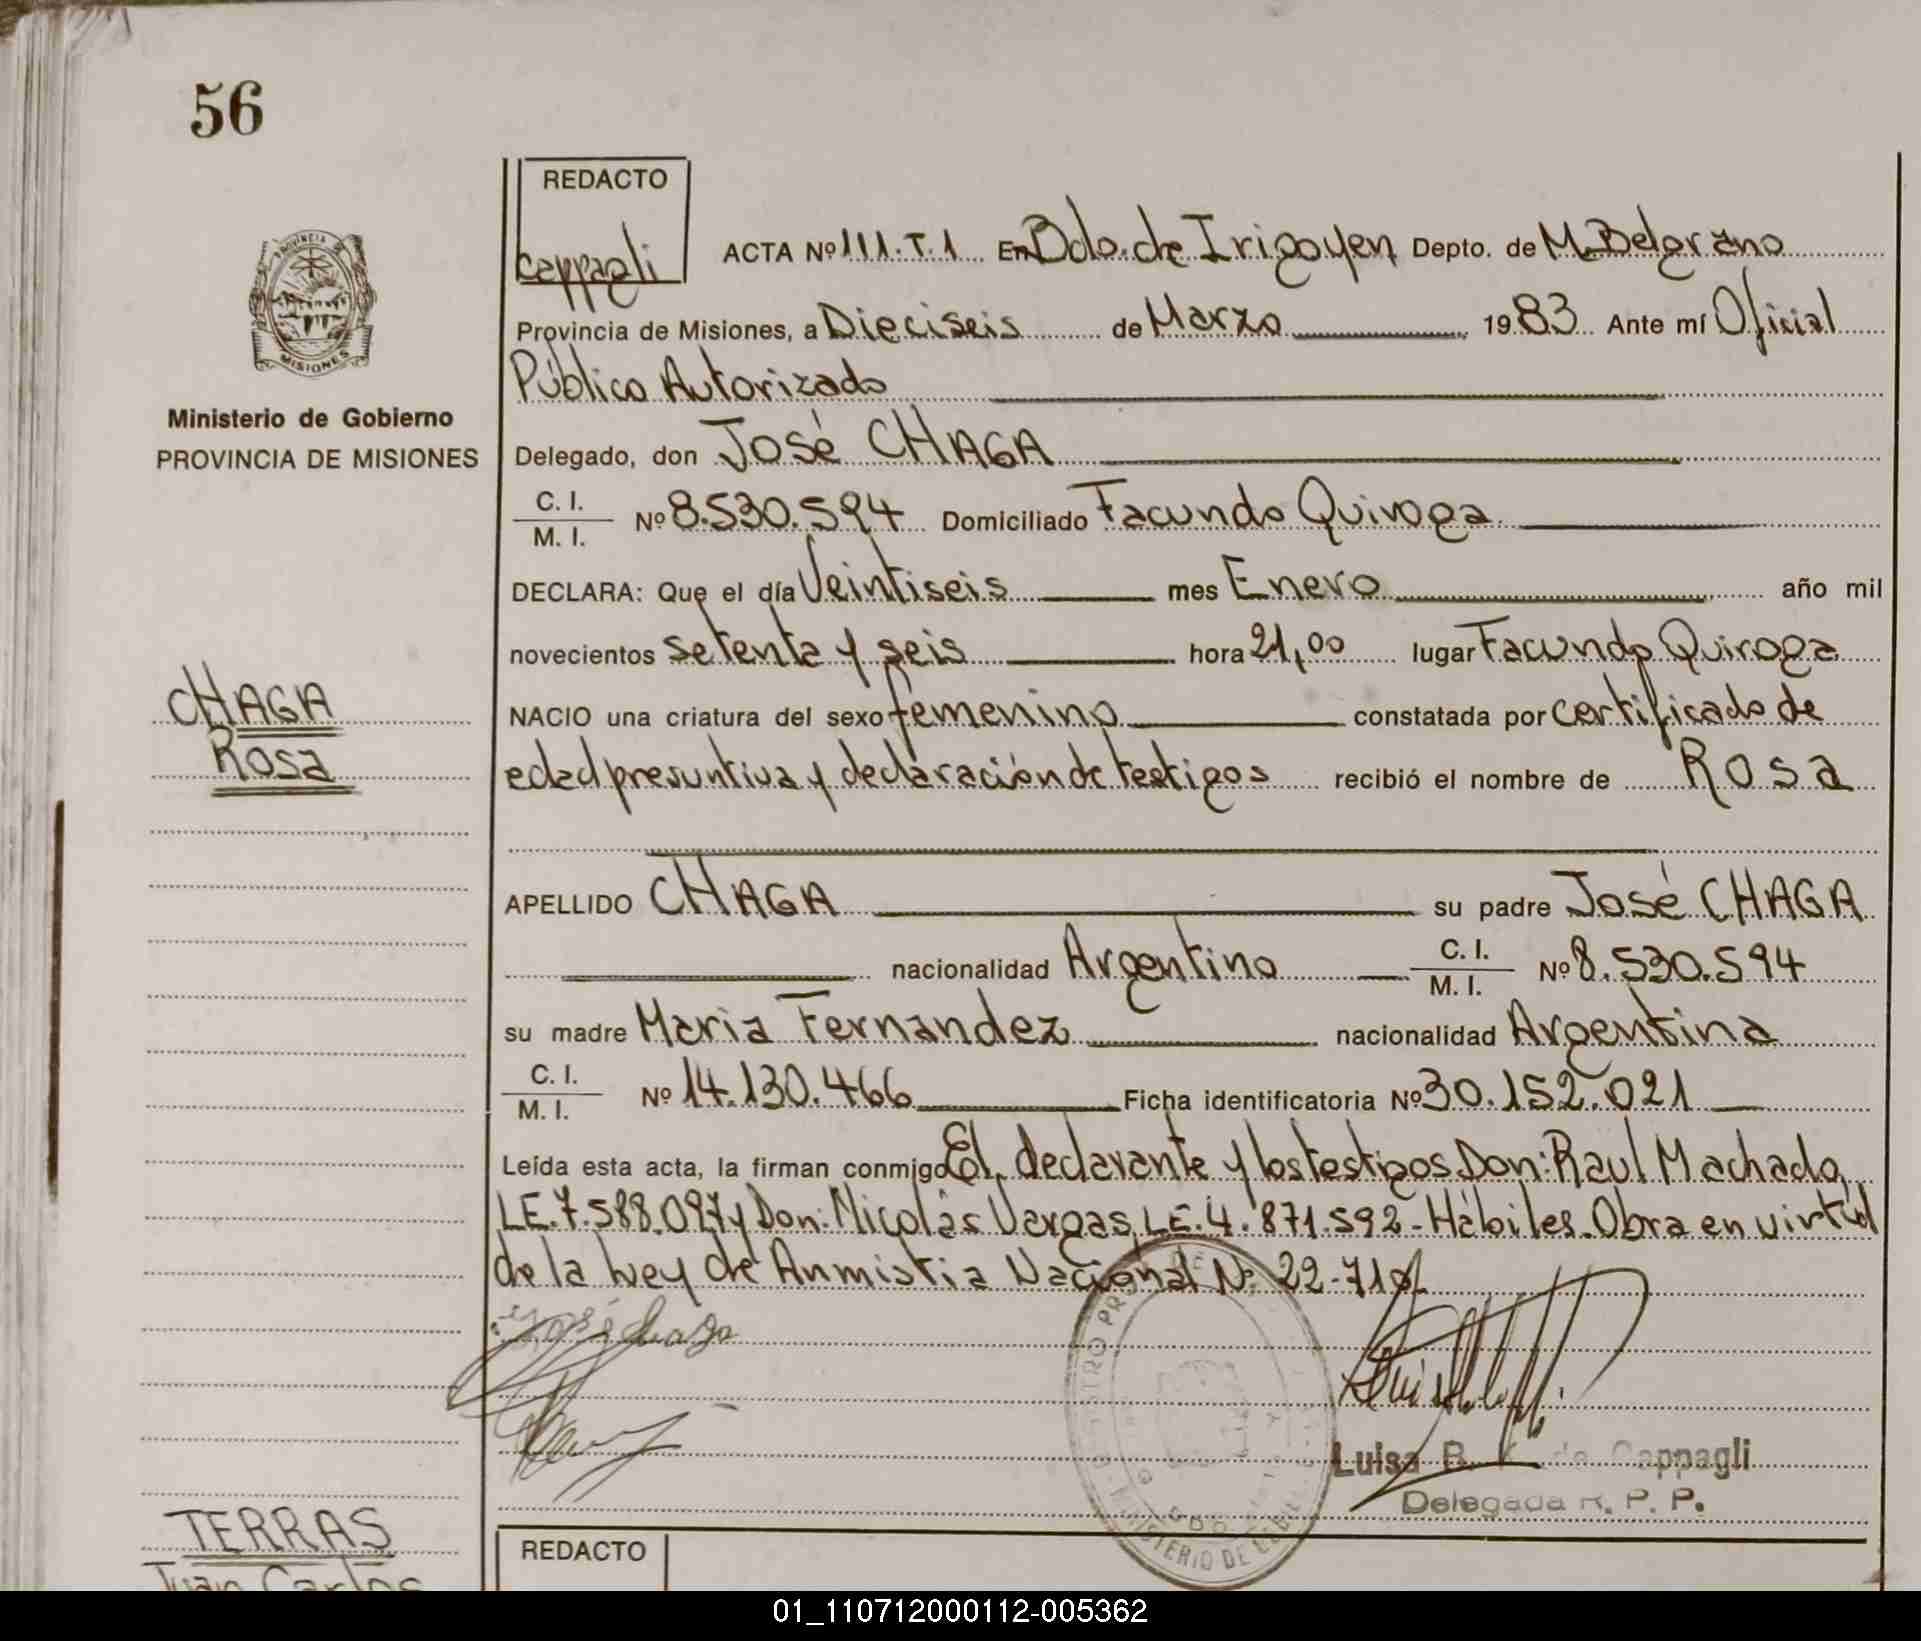 56
REDACTO
Cappagli
PROVINCIA DE
MISIONES
Ministerio de Gobierno
PROVINCIA DE MISIONES
ACTA Nº 111. T. 1 En Bdo. de Irigoyen Depto. de M. Belgrano
Provincia de Misiones, a Dieciseis de Marzo 1983 Ante mí Oficial
Público Autorizado
Delegado, don José CHAGA
C. I.
M. I. Nº 8.530.594 Domiciliado Facundo Quiroga
DECLARA: Que el día Veintiseis mes Enero año mil
novecientos setenta y seis hora 21,00 lugar Facundo Quiroga
CHAGA
Rosa
NACIO una criatura del sexo femenino constatada por certificado de
edad presuntiva y declaración de testigos recibió el nombre de Rosa
APELLIDO CHAGA su padre José CHAGA
nacionalidad Argentino C. I.
M. I. Nº 8.530.594
su madre Maria Fernandez nacionalidad Argentina
C. I.
M. I. Nº 14.130.466 Ficha identificatoria Nº 30.152.021
Leída esta acta, la firman conmigo El declarante y los testigos Don: Raul Machado,
LE. 7.588.097 y Don: Nicolás Vargas, LE. 4.871.592 - Hábiles. Obra en virtud
de la Ley de Anmistia Nacional Nº 22-710
José Chaga
Luisa B. de Cappagli
Delegada R. P. P.
MINISTERIO DE
TERRAS
Juan Carlos
REDACTO
01_110712000112-005362